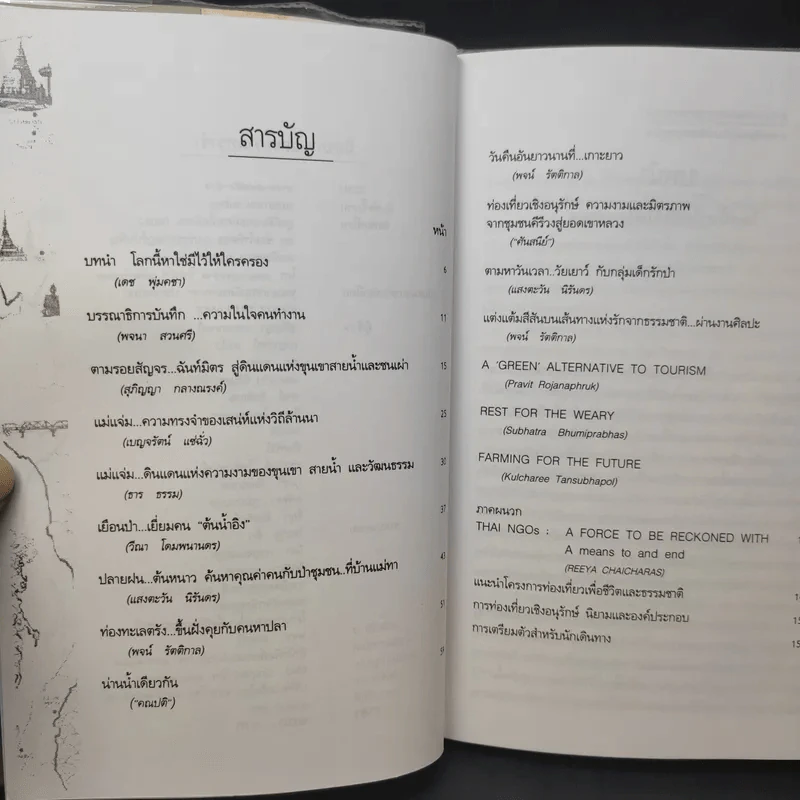 สารบัญ
หน้า
บทนำ โลกนี้หาใช่มีไว้ให้ใครครอง 6
(เดช พุ่มคชา)
บรรณาธิการบันทึก ...ความในใจคนทำงาน 11
(พจนา สวนศรี)
ตามรอยสัญจร...ฉันท์มิตร สู่ดินแดนแห่งขุนเขาสายน้ำและชนเผ่า 15
(สุภิญญา กลางณรงค์)
แม่แจ่ม...ความทรงจำของเสน่ห์แห่งวิถีล้านนา 25
(เบญจรัตน์ แซ่ฉั่ว)
แม่แจ่ม...ดินแดนแห่งความงามของขุนเขา สายน้ำ และวัฒนธรรม 30
(ธาร ธรรม)
เยือนป่า...เยี่ยมคน "ต้นน้ำอิง" 37
(วีณา โดมพนานดร)
ปลายฝน...ต้นหนาว ค้นหาคุณค่าคนกับป่าชุมชน..ที่บ้านแม่ทา 43
(แสงตะวัน นิรันดร)
ท่องทะเลตรัง...ขึ้นฝั่งคุยกับคนหาปลา 51
(พจน์ รัตติกาล)
น่านน้ำเดียวกัน 59
("คณปติ")
วันคืนอันยาวนานที่...เกาะยาว
(พจน์ รัตติกาล)
ท่องเที่ยวเชิงอนุรักษ์ ความงามและมิตรภาพ
จากชุมชนคีรีวงสู่ยอดเขาหลวง
("คันสนีย์")
ตามหาวันเวลา..วัยเยาว์ กับกลุ่มเด็กรักป่า
(แสงตะวัน นิรันดร)
แต่งแต้มสีสันบนเส้นทางแห่งรักจากธรรมชาติ...ผ่านงานศิลปะ
(พจน์ รัตติกาล)
A 'GREEN' ALTERNATIVE TO TOURISM
(Pravit Rojanaphruk)
REST FOR THE WEARY
(Subhatra Bhumiprabhas)
FARMING FOR THE FUTURE
(Kulcharee Tansubhapol)
ภาคผนวก
THAI NGOs : A FORCE TO BE RECKONED WITH
A means to and end
(REEYA CHAICHARAS)
แนะนำโครงการท่องเที่ยวเพื่อชีวิตและธรรมชาติ
การท่องเที่ยวเชิงอนุรักษ์ นิยามและองค์ประกอบ
การเตรียมตัวสำหรับนักเดินทาง